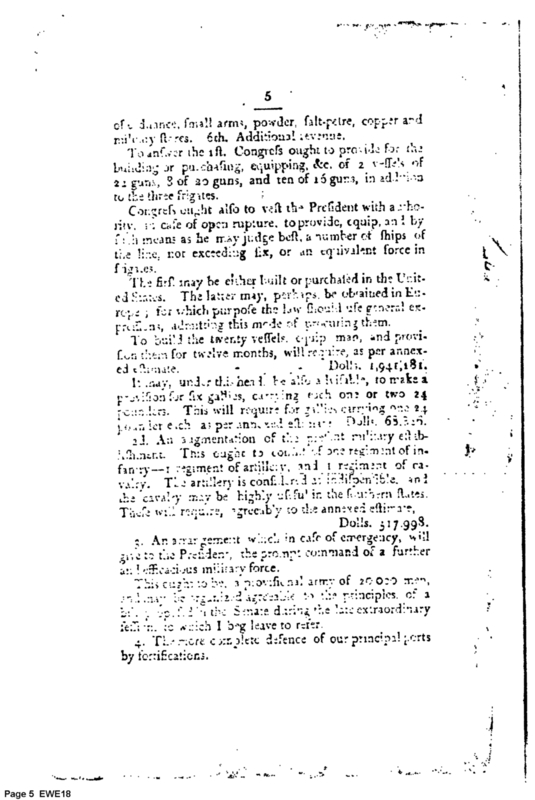 5
of small arms, powder, salt-petre, copper and
military stores. 6th. Additional revenue.
To answer the 1st. Congress ought to provide for the
building or purchasing, equipping, &c. of 2 vessels of
22 guns, 8 of 20 guns, and ten of 16 guns, in addition
to the three frigates.
Congress ought also to vest the President with autho-
rity, in case of open rupture, to provide, equip, and by
such means as he may judge best, a number of ships of
the line, not exceeding six, or an equivalent force in
frigates.
The first may be either built or purchased in the Unit-
ed States. The latter may, perhaps, be obtained in Eu-
rope ; for which purpose the law should use general ex-
pressions, admitting this mode of procuring them.
To build the twenty vessels, equip man, and provi-
sion them for twelve months, will require, as per annex-
ed estimate. - - Dolls. 1,941,181.
It may, under this head, be also advisable, to make a
provision for six gallies, carrying each one or two 24
pounders. This will require for gallies carrying one 24
pounder each as per annexed estimate Dolls.
2d. An augmentation of the present military estab-
lishment. This ought to consist of one regiment of in-
fantry--1 regiment of artillery, and 1 regiment of ca-
valry. The artillery is considered as indispensible, and
the cavalry may be highly useful in the southern states.
These will require, agreeably to the annexed estimate,
Dolls. 517.998.
3. An arrangement which in case of emergency, will
give to the President, the prompt command of a further
and efficacious military force.
This ought to be, a provisional army of 20.000 men,
and may be organized agreeable to the principles of a
bill in the Senate during the late extraordinary
session, to which I beg leave to refer.
4. The more complete defence of our principal ports
by fortifications.
Page 5 EWE18